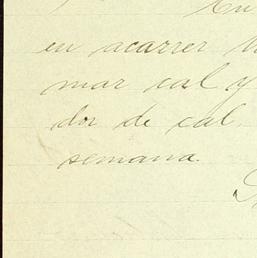 en acarrer
mar cal y
dor de cal.
semana.